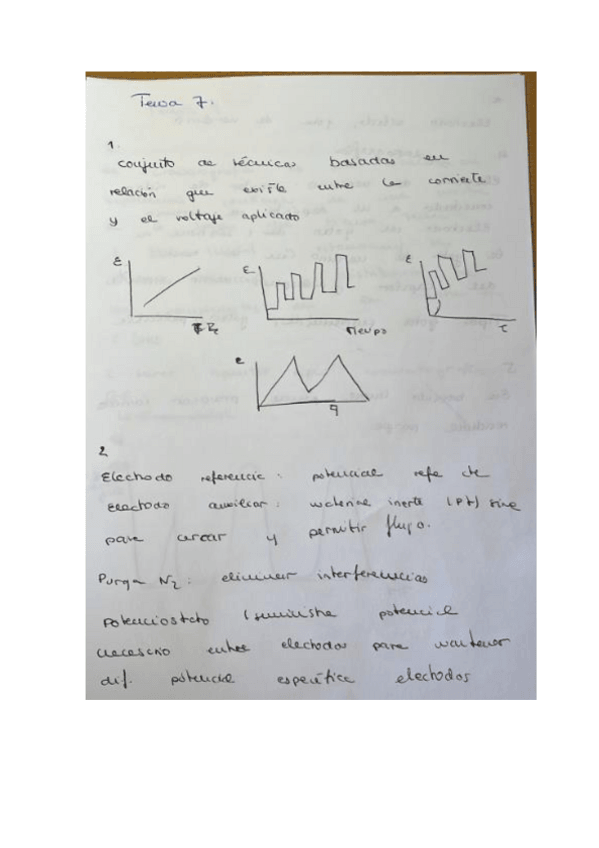 Tema 7.
1.
conjunto de técnicas basadas en
relación que existe entre la corriente
y el voltaje aplicado
E
E
E
tiempo
t
e
q
2
Electrodo referencia : potencial refe cte
Electrodo auxiliar : material inerte (Pt) sirve
para cerrar y permitir flujo.
Purga N2 : eliminar interferencias
Potenciostato (suministra potencial
necesario entre electrodos para mantener
dif. potencial específica electrodos